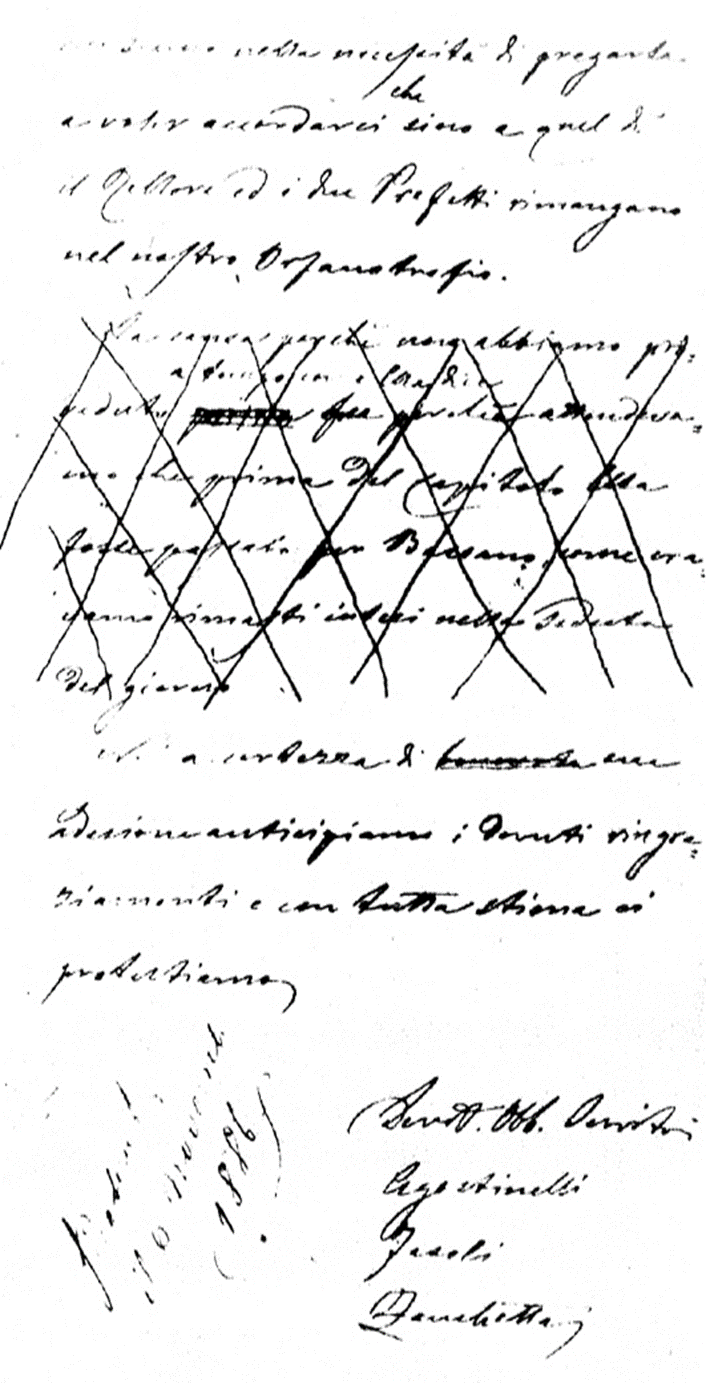 nella necessità di pregarla
che
a voler accordarci sino a quel dì
il Rettore ed i due Prefetti rimangano
nel nostro Orfanotrofio.
La causa perchè non abbiamo pro=
a tempo
veduto fu perchè attendeva=
mo che prima del capitolo Ella
fosse passata per Bassano, come era=
vamo rimasti intesi nella seduta
del giorno
Nella certezza di una
adesione anticipiamo i dovuti ringra=
ziamenti e con tutta stima ci
protestiamo
Devott. Obb. Servitori
Agostinelli
Jesoli
Zanchetta
10 novembre
1886